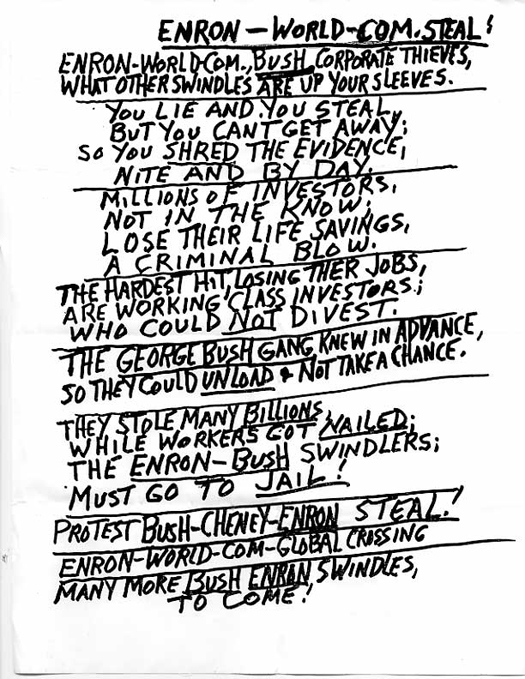 ENRON-WORLD-COM. STEAL!
ENRON-WORLD-COM., BUSH, CORPORATE THIEVES,
WHAT OTHER SWINDLES ARE UP YOUR SLEEVES.
YOU LIE AND YOU STEAL,
BUT YOU CANT GET AWAY;
SO YOU SHRED THE EVIDENCE,
NITE AND BY DAY.
MILLIONS OF INVESTORS,
NOT IN THE KNOW;
LOSE THEIR LIFE SAVINGS,
A CRIMINAL BLOW.
THE HARDEST HIT, LOSING THER JOBS,
ARE WORKING CLASS INVESTORS;
WHO COULD NOT DIVEST.
THE GEORGE BUSH GANG KNEW IN ADVANCE,
SO THEY COULD UNLOAD & NOT TAKE A CHANCE.
THEY STOLE MANY BILLIONS,
WHILE WORKERS GOT NAILED;
THE ENRON-BUSH SWINDLERS;
MUST GO TO JAIL!
PROTEST BUSH-CHENEY-ENRON STEAL!
ENRON-WORLD-COM-GLOBAL CROSSING
MANY MORE BUSH ENRON SWINDLES,
TO COME!